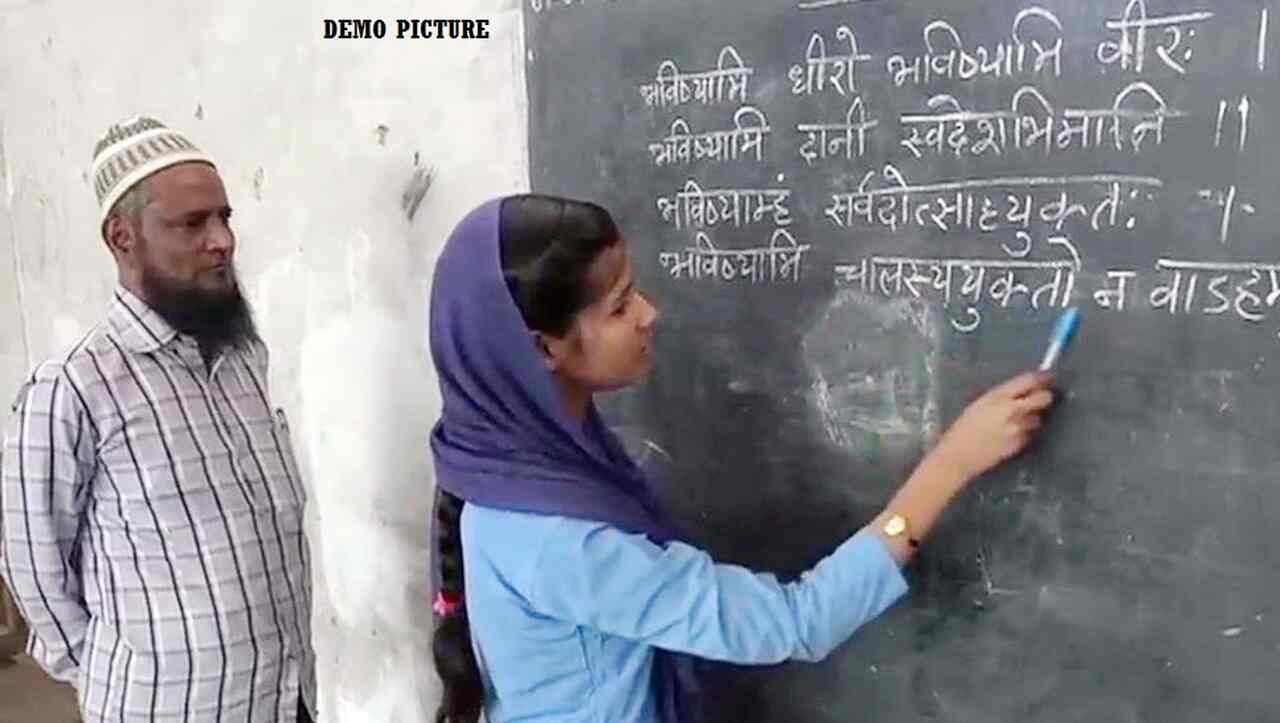 DEMO PICTURE
भविष्यामि धीरो भविष्यामि वीरः ।
भविष्यामि दानी स्वदेशाभिमानि ॥
भविष्याम्हं सर्वदोत्साहयुक्तः ।
भविष्यामि चालस्ययुक्तो न वाऽहम